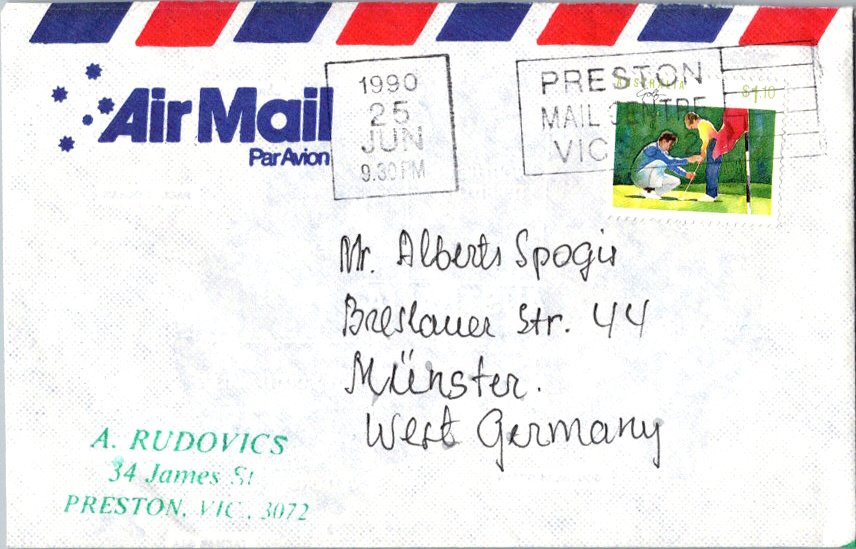 Air Mail
Par Avion
1990
25
JUN
9.30 PM
PRESTON
MAIL CENTRE
VIC
AUSTRALIA
$1.10
Mr. Alberts Spogis
Breslauer Str. 44
Münster.
West Germany
A. RUDOVICS
34 James St
PRESTON, VIC., 3072